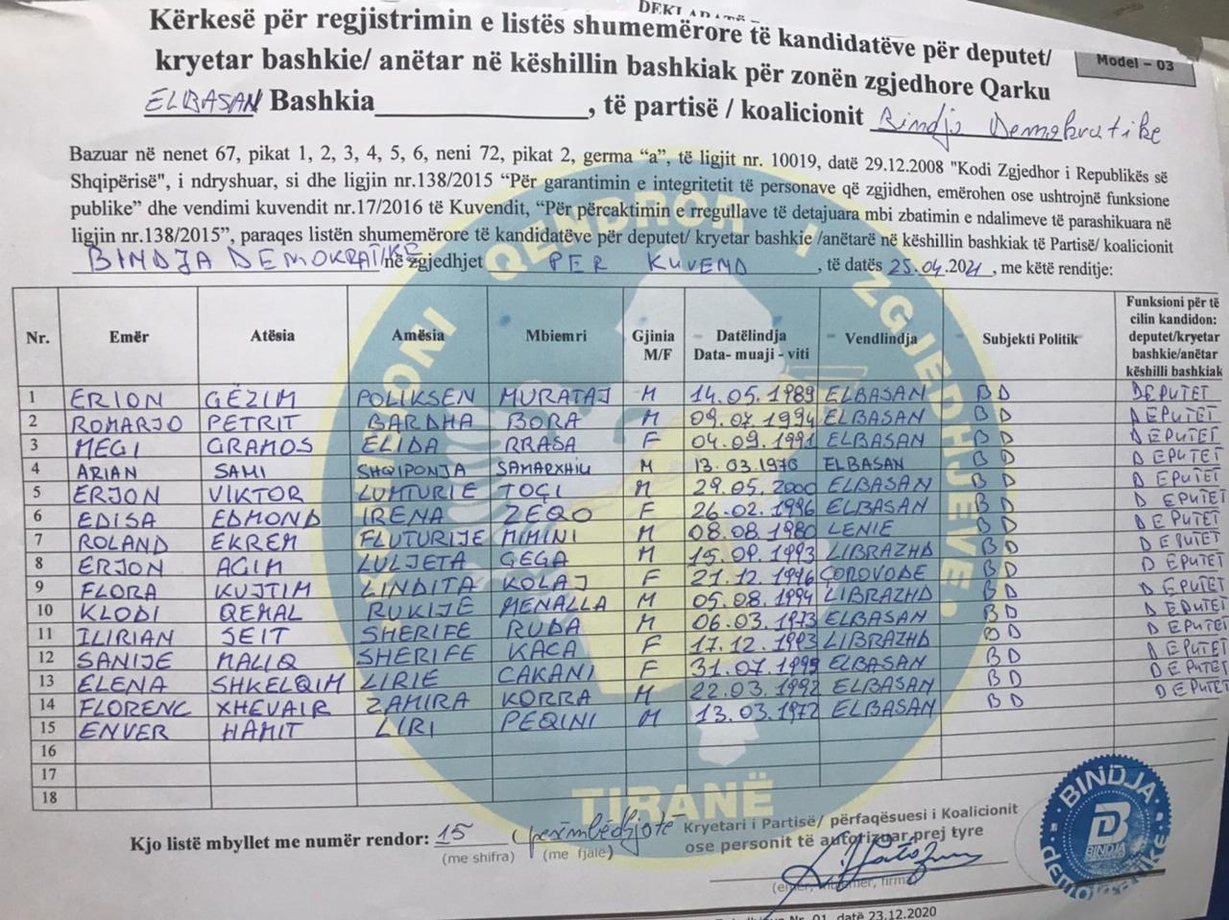 DEKLARATË
Kërkesë për regjistrimin e listës shumemërore të kandidatëve për deputet/
kryetar bashkie/ anëtar në këshillin bashkiak për zonën zgjedhore Qarku
ELBASAN Bashkia____________, të partisë / koalicionit Bindja Demokratike
Model – 03
Bazuar në nenet 67, pikat 1, 2, 3, 4, 5, 6, neni 72, pikat 2, germa “a”, të ligjit nr. 10019, datë 29.12.2008 "Kodi Zgjedhor i Republikës së
Shqipërisë", i ndryshuar, si dhe ligjin nr.138/2015 “Për garantimin e integritetit të personave që zgjidhen, emërohen ose ushtrojnë funksione
publike” dhe vendimi kuvendit nr.17/2016 të Kuvendit, “Për përcaktimin e rregullave të detajuara mbi zbatimin e ndalimeve të parashikuara në
ligjin nr.138/2015”, paraqes listën shumemërore të kandidatëve për deputet/ kryetar bashkie /anëtarë në këshillin bashkiak të Partisë/ koalicionit
BINDJA DEMOKRATIKE/në zgjedhjet PER KUVEND, të datës 25.04.2021, me këtë renditje:
Nr. Emër Atësia Amësia Mbiemri Gjinia M/F Datëlindja Data- muaji - viti Vendlindja Subjekti Politik Funksioni për të cilin kandidon: deputet/kryetar bashkie/anëtar këshilli bashkiak
1 ERION GËZIM POLIKSEN MURATAJ M 14.05.1989 ELBASAN BD DEPUTET
2 ROMARJO PETRIT BARDHA BORA M 09.07.1994 ELBASAN BD DEPUTET
3 MEGI GRAMOS ELIDA RRASA F 04.09.1991 ELBASAN BD DEPUTET
4 ARIAN SAMI SHQIPONJA SAMARXHIU M 13.03.1970 ELBASAN BD DEPUTET
5 ERJON VIKTOR LUMTURIE TOÇI M 29.05.2000 ELBASAN BD DEPUTET
6 EDISA EDMOND IRENA ZEQO F 26.02.1996 ELBASAN BD DEPUTET
7 ROLAND EKREM FLUTURIJE MIMINI M 08.08.1980 LENIE BD DEPUTET
8 ERJON AGIM LULJETA GEGA M 15.09.1993 LIBRAZHD BD DEPUTET
9 FLORA KUJTIM LINDITA KOLAJ F 21.12.1996 ÇOROVODE BD DEPUTET
10 KLODI QEMAL RUKIJE MENALLA M 05.08.1994 LIBRAZHD BD DEPUTET
11 ILIRIAN SEIT SHERIFE RUDA M 06.03.1973 ELBASAN BD DEPUTET
12 SANIJE MALIQ SHERIFE KACA F 17.12.1993 LIBRAZHD BD DEPUTET
13 ELENA SHKELQIM LIRIE CAKANI F 31.07.1995 ELBASAN BD DEPUTET
14 FLORENC XHEVAIR ZAMIRA KORRA M 22.03.1992 ELBASAN BD DEPUTET
15 ENVER HAMIT LIRI PEQINI M 13.03.1972 ELBASAN BD DEPUTET
16
17
18
KOMISIONI QENDROR I ZGJEDHJEVE.
TIRANË
Kjo listë mbyllet me numër rendor: 15 (pesëmbëdhjetë
(me shifra) (me fjalë)
Kryetari i Partisë/ përfaqësuesi i Koalicionit
ose personit të autorizuar prej tyre
(emer, mbiemer, firma)
BINDJA
BD
BINDJA
demokratike
Nr. 01, datë 23.12.2020